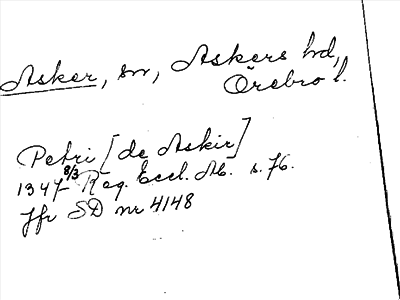 Asker, sn, Askers hd,
Örebro l.
Petri [de Askir]
1347 8/3 Reg. Eccl. Ab. s. 76.
Jfr SD nr 4148